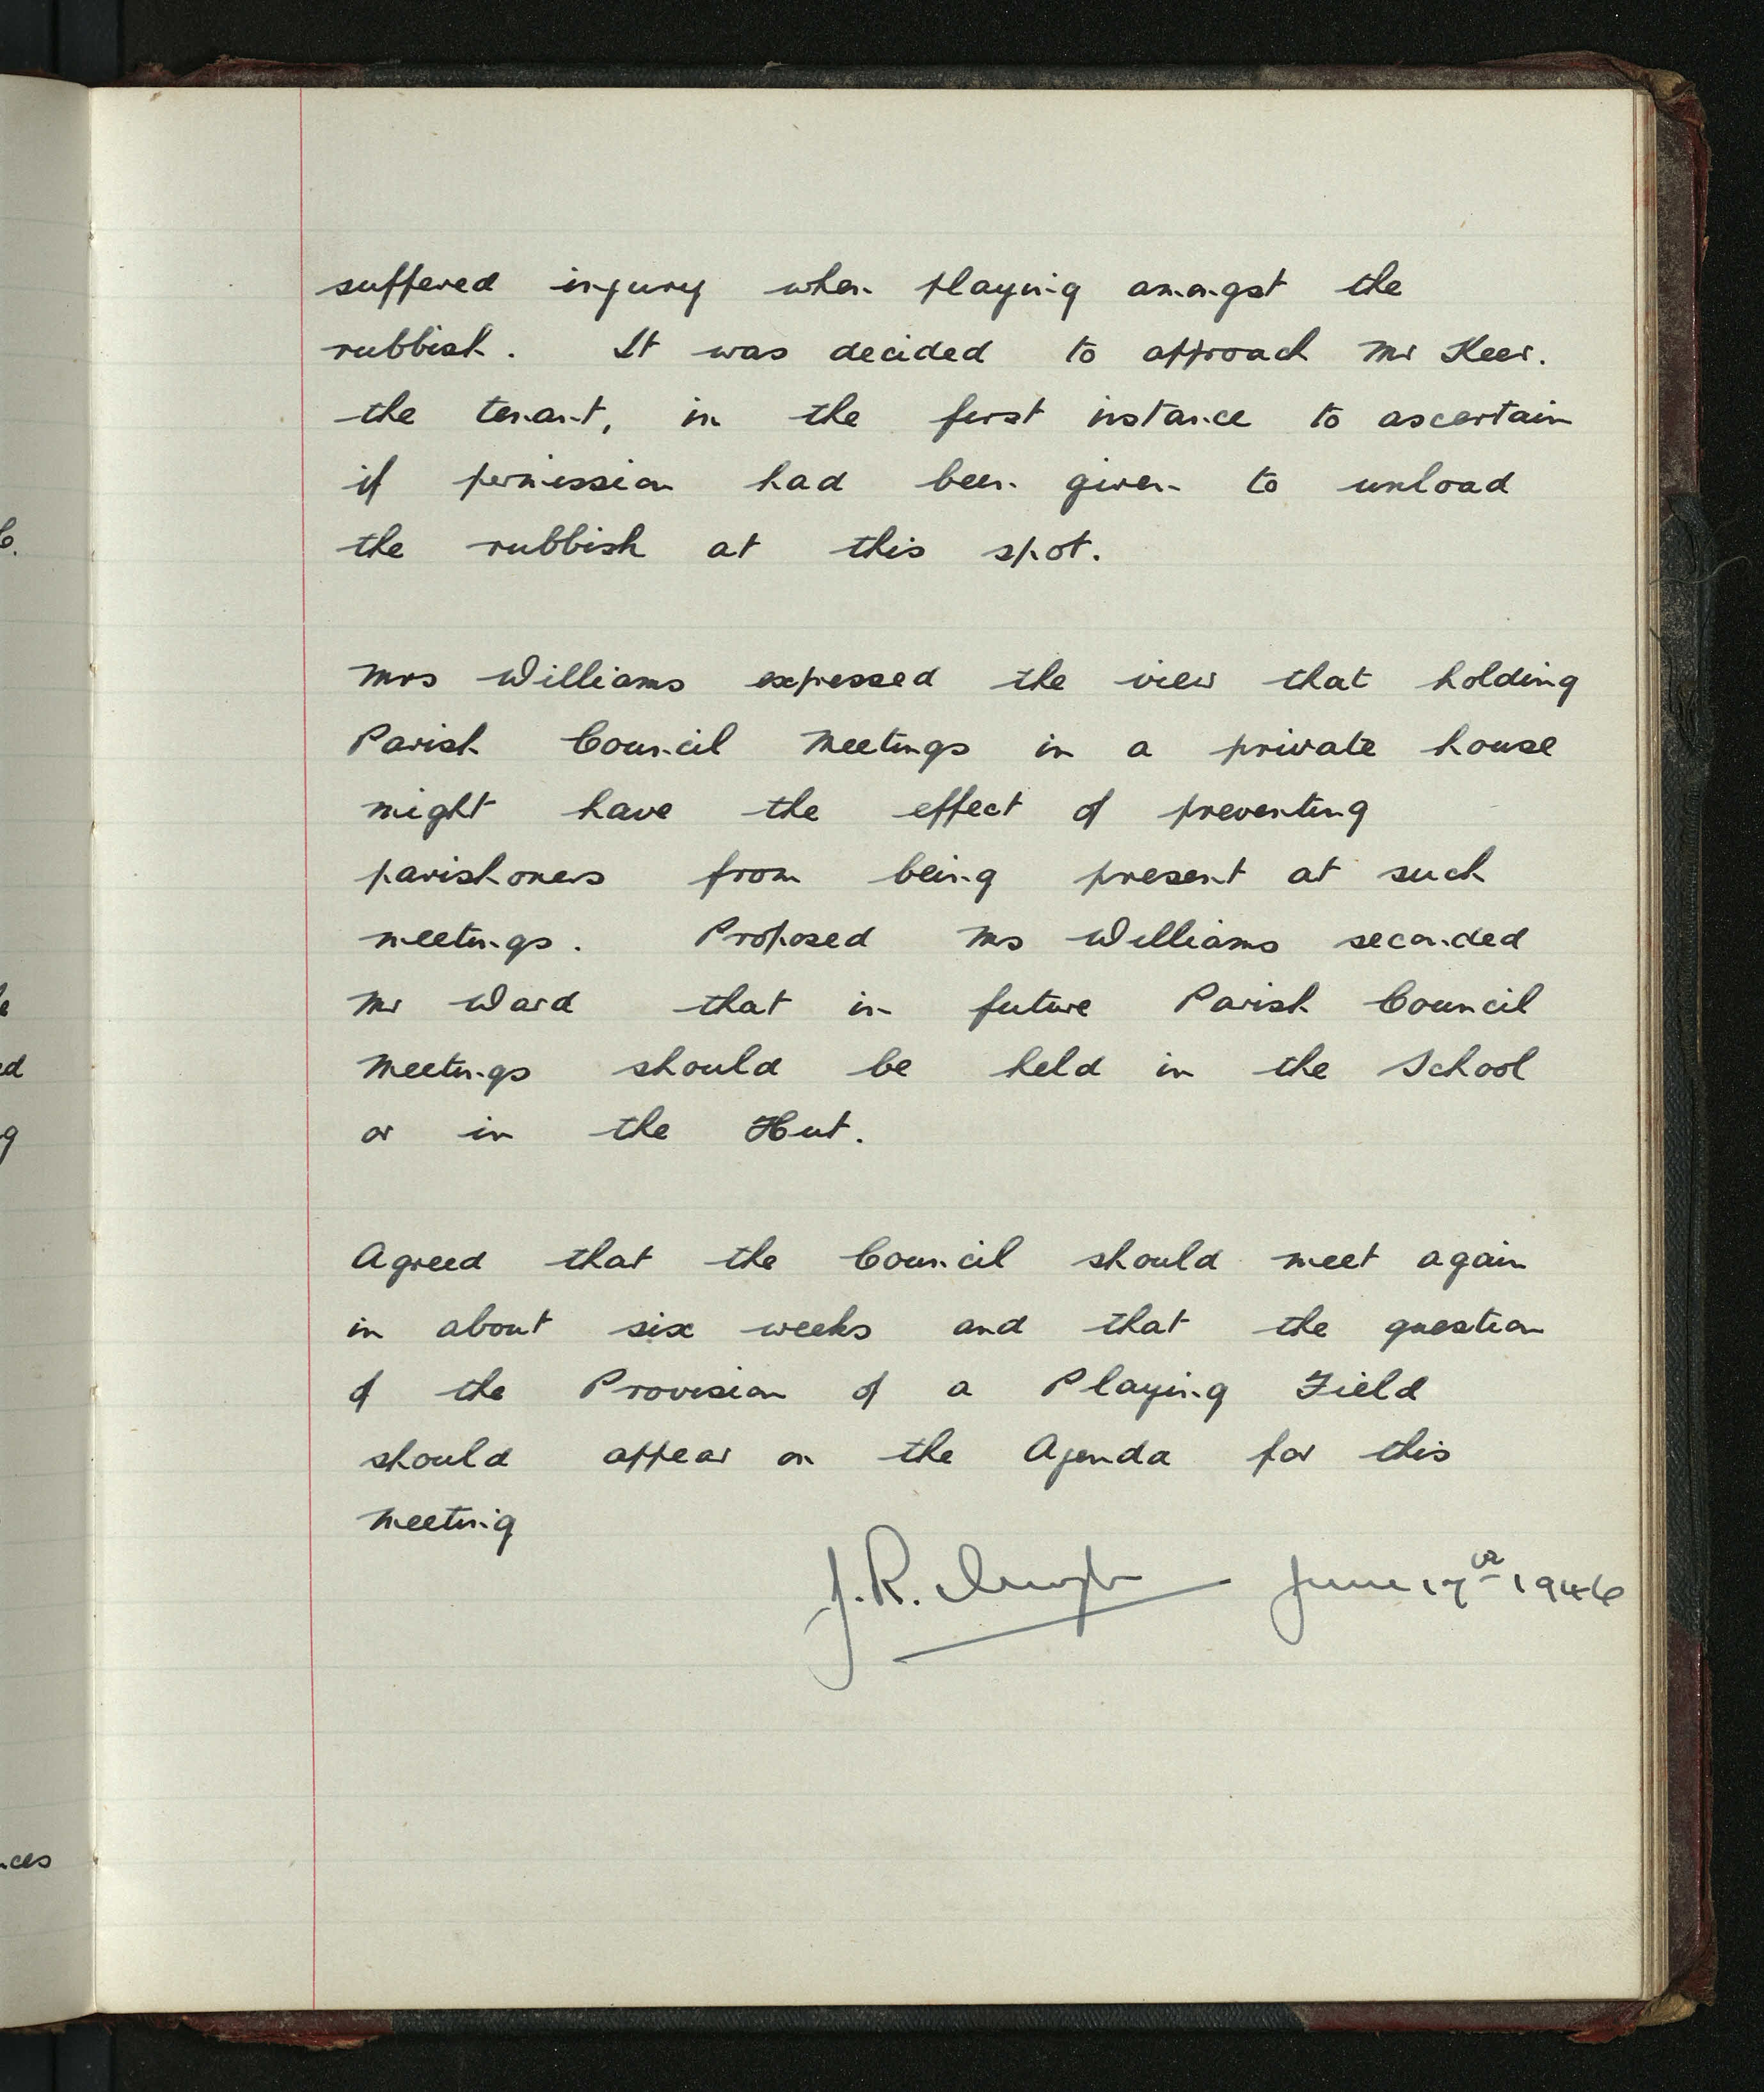 suffered injury when playing amongst the
rubbish. It was decided to approach Mr Keer.
the tenant, in the first instance to ascertain
if permission had been given to unload
the rubbish at this spot.
Mrs Williams expressed the view that holding
Parish Council Meetings in a private house
might have the effect of preventing
parishoners from being present at such
meetings. Proposed Mrs Williams seconded
Mr Ward that in future Parish Council
Meetings should be held in the School
or in the Hut.
Agreed that the Council should meet again
in about six weeks and that the question
of the Provision of a Playing Field
should appear on the Agenda for this
Meeting
J. R. June 17th 1946